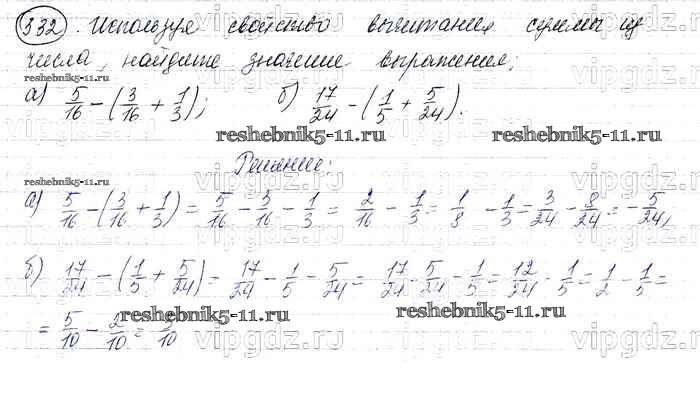 332. Используя свойство вычитания суммы из
числа, найдите значение выражения;
reshebnik5-11.ru
а) 5/16 - (3/16 + 1/3); б) 17/24 - (1/5 + 5/24).
reshebnik5-11.ru
Решение:
reshebnik5-11.ru
vipgdz.ru
а) 5/16 - (3/16 + 1/3) = 5/16 - 3/16 - 1/3 = 2/16 - 1/3 = 1/8 - 1/3 = 3/24 - 8/24 = -5/24,
б) 17/24 - (1/5 + 5/24) = 17/24 - 1/5 - 5/24 = 17/24 - 5/24 - 1/5 = 12/24 - 1/5 = 1/2 - 1/5 =
= 5/10 - 2/10 = 3/10
reshebnik5-11.ru
reshebnik5-11.ru
vipgdz.ru